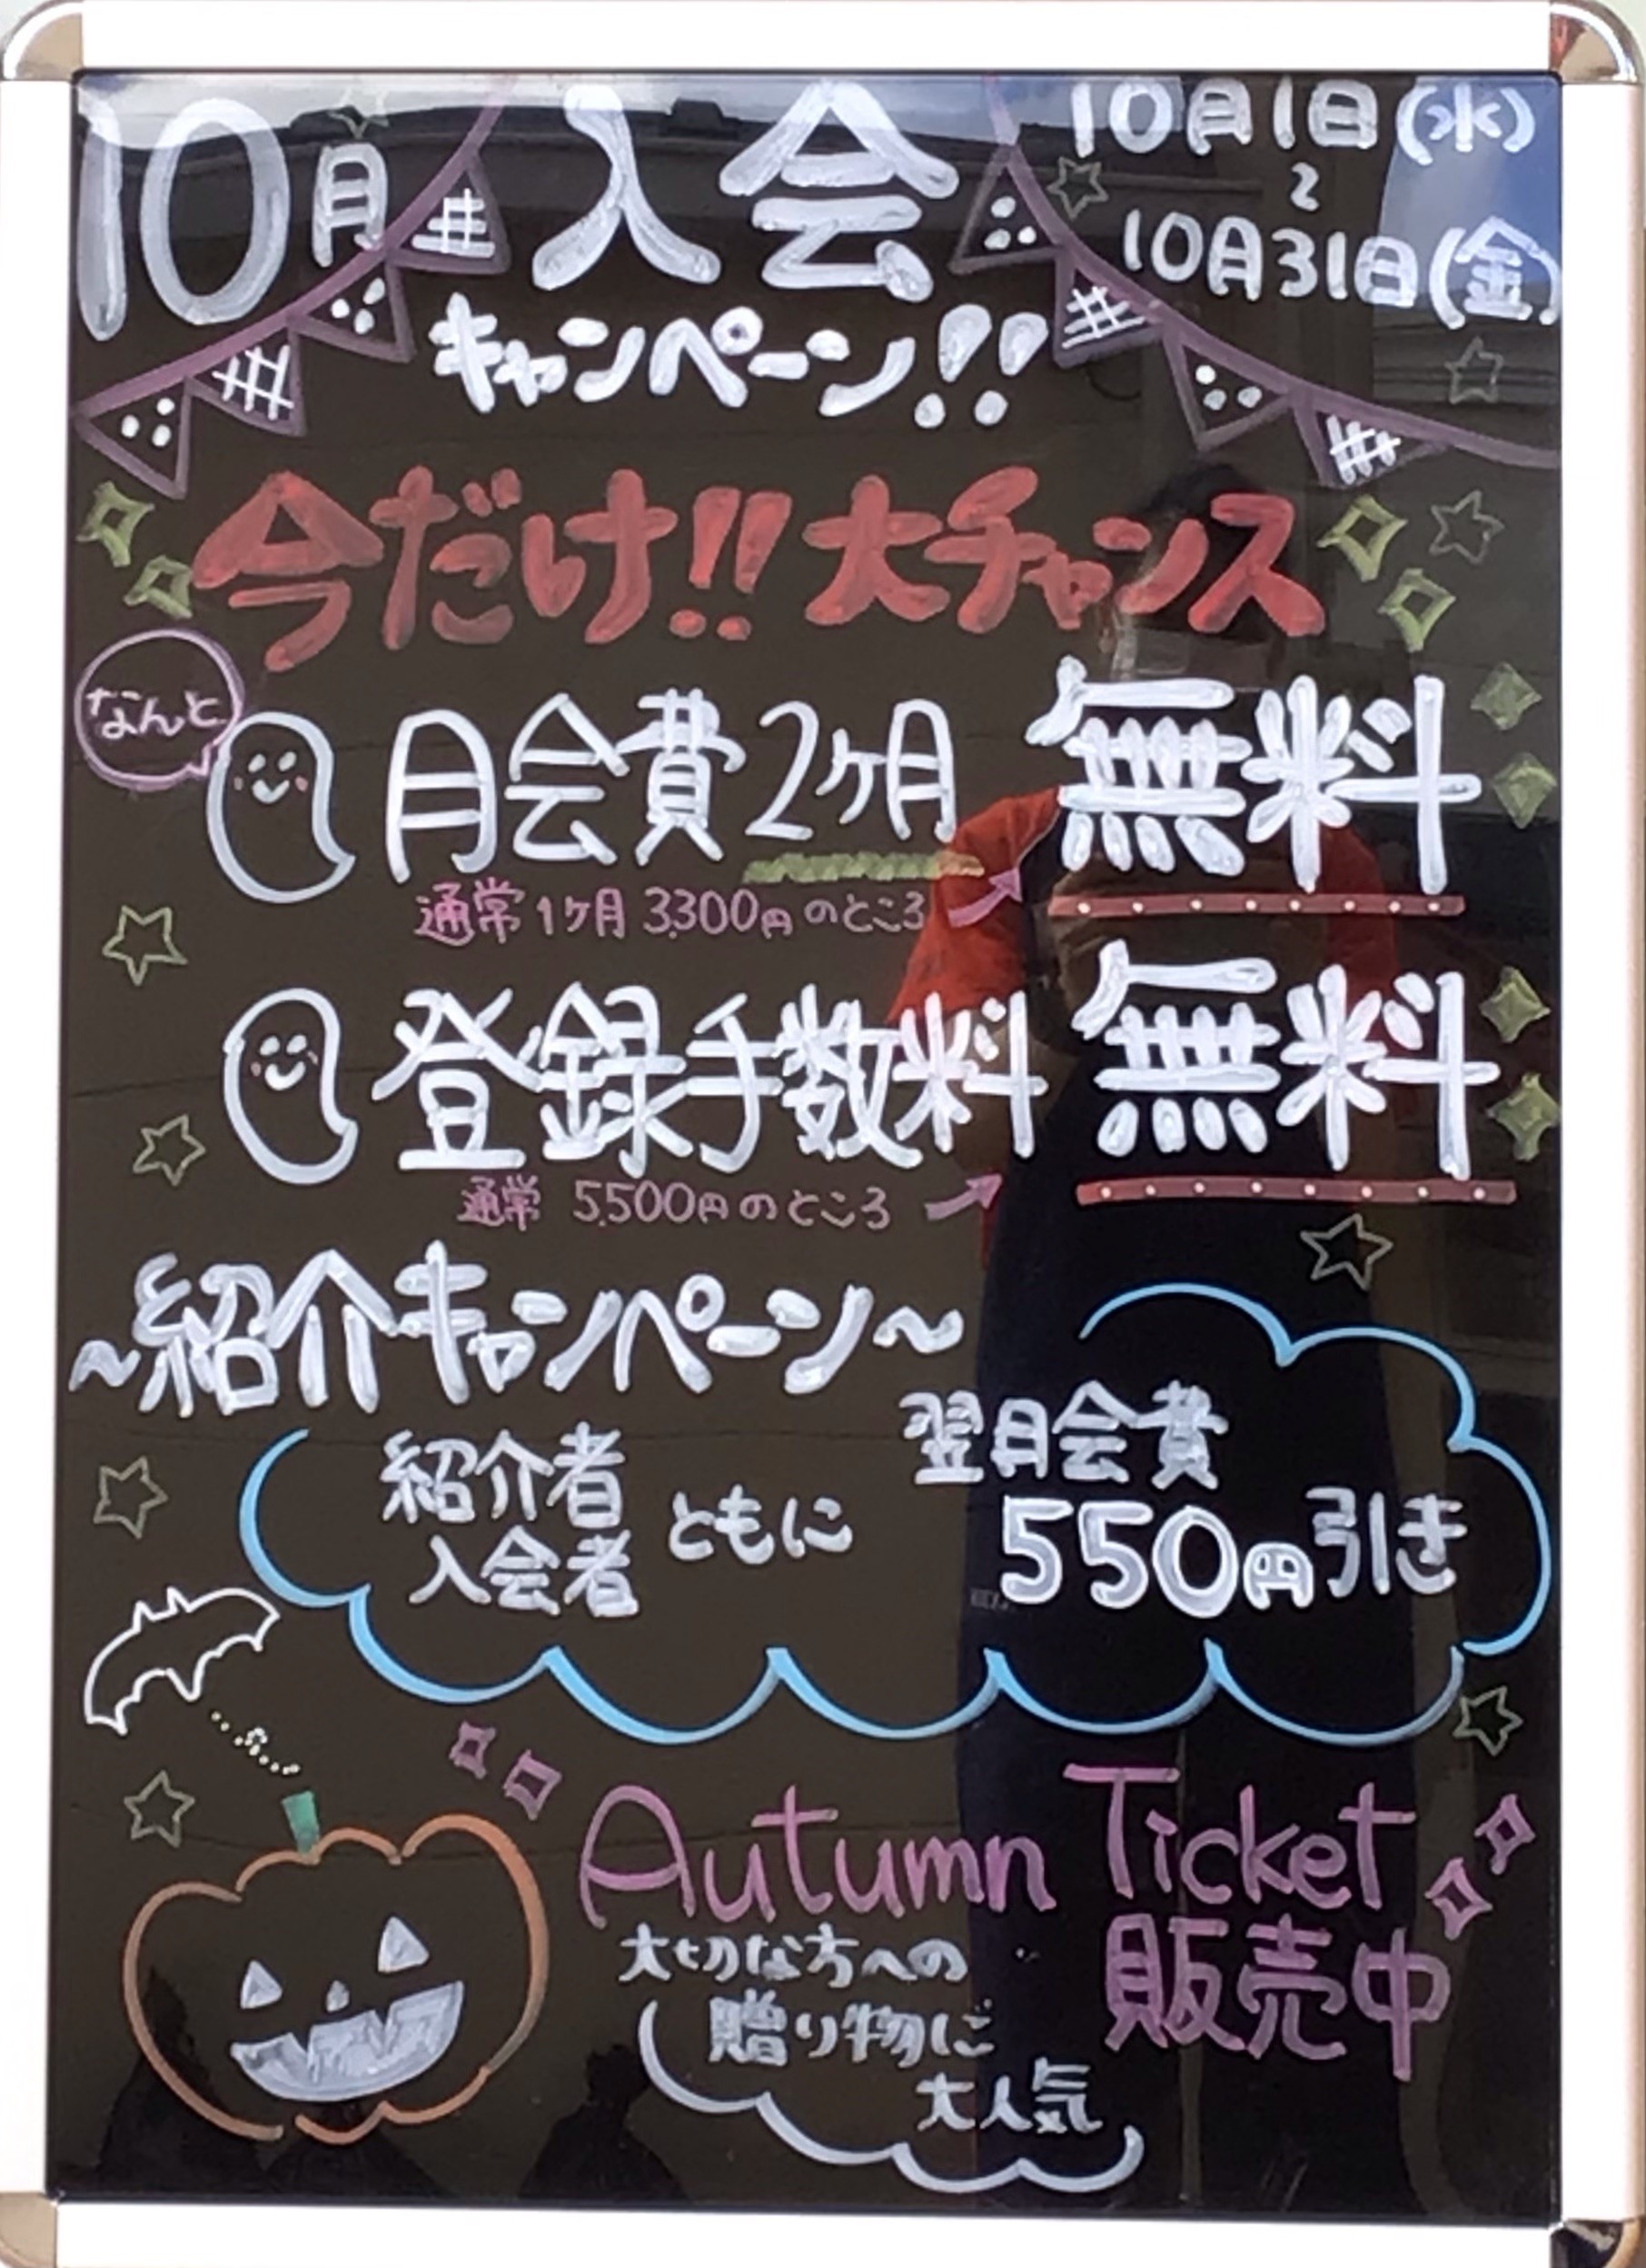 10月 入会
キャンペーン!!
10月1日(水)
~
10月31日(金)
今だけ!! 大チャンス
なんと
月会費2ヶ月 無料
通常1ヶ月 3,300円のところ
登録手数料 無料
通常 5,500円のところ
~紹介キャンペーン~
紹介者
入会者
ともに
翌月会費
550円引き
Autumn Ticket
販売中
大切な方への
贈り物に
大人気